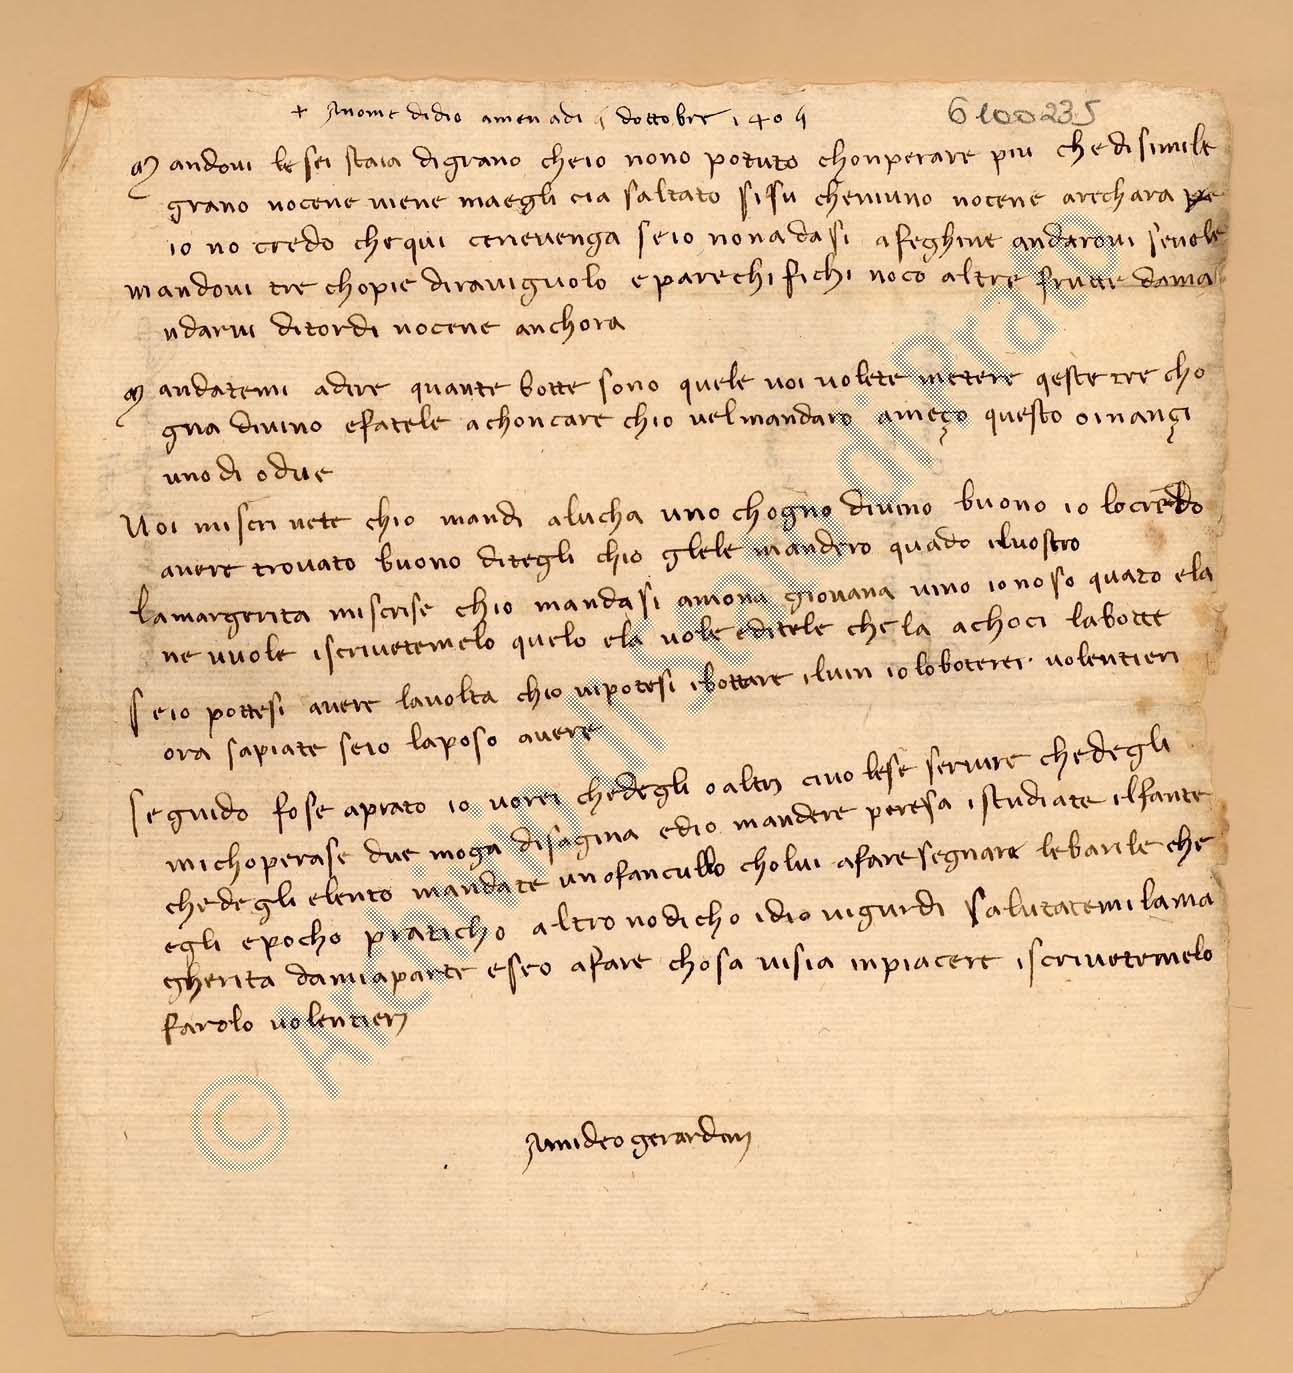 + Inome didio amen adi 9 dottobre 1409
6100235
Mandovi le sei staia digrano cheio nono potuto chonperare piu che di simile
grano nocene viene maegli cia saltato sisu cheniuno nocene arechara pe
io no credo chequi cenevenga seio nonadasi afeghine andarovi sevole
mandovi tre chopie diravigiuolo e parechi fichi noco altre frutte dama
ndarvi ditordi nocene anchora
Mandatemi adire quante botte sono quele voi volete metere qeste tre cho
gna divino efatele achoncare chio velmandaro ameço questo oinançi
unodi odue
Voi miscrivete chio mandi alucha uno chogno divino buono io locredo
avere trovato buono ditegli chio glele mandero quado ilvostro
lamargerita miscrise chio mandasi amona giovana vino io no so quato ela
ne vuole iscrivetemelo quelo ela vole editele chela achoci labotte
Seio pottesi avere lavolta chio vipotesi ibottare ilvin io loboterei volentieri
ora sapiate seio laposo avere
Se guido fose aprato io vorei chedegli oaltri civolese servire chedegli
michoperase due moga disagina edio mandere peresa istudiate ilfante
chedegli elento mandate unofancullo cholui afare segnare lebarile che
egli epocho praticho altro nodicho idio vigurdi salutatemi lama
gherita damiaparte eseo afare chosa visia inpiacere iscrivetemelo
farolo volentieri
Amideo gerardini
© Archivio di Stato di Prato